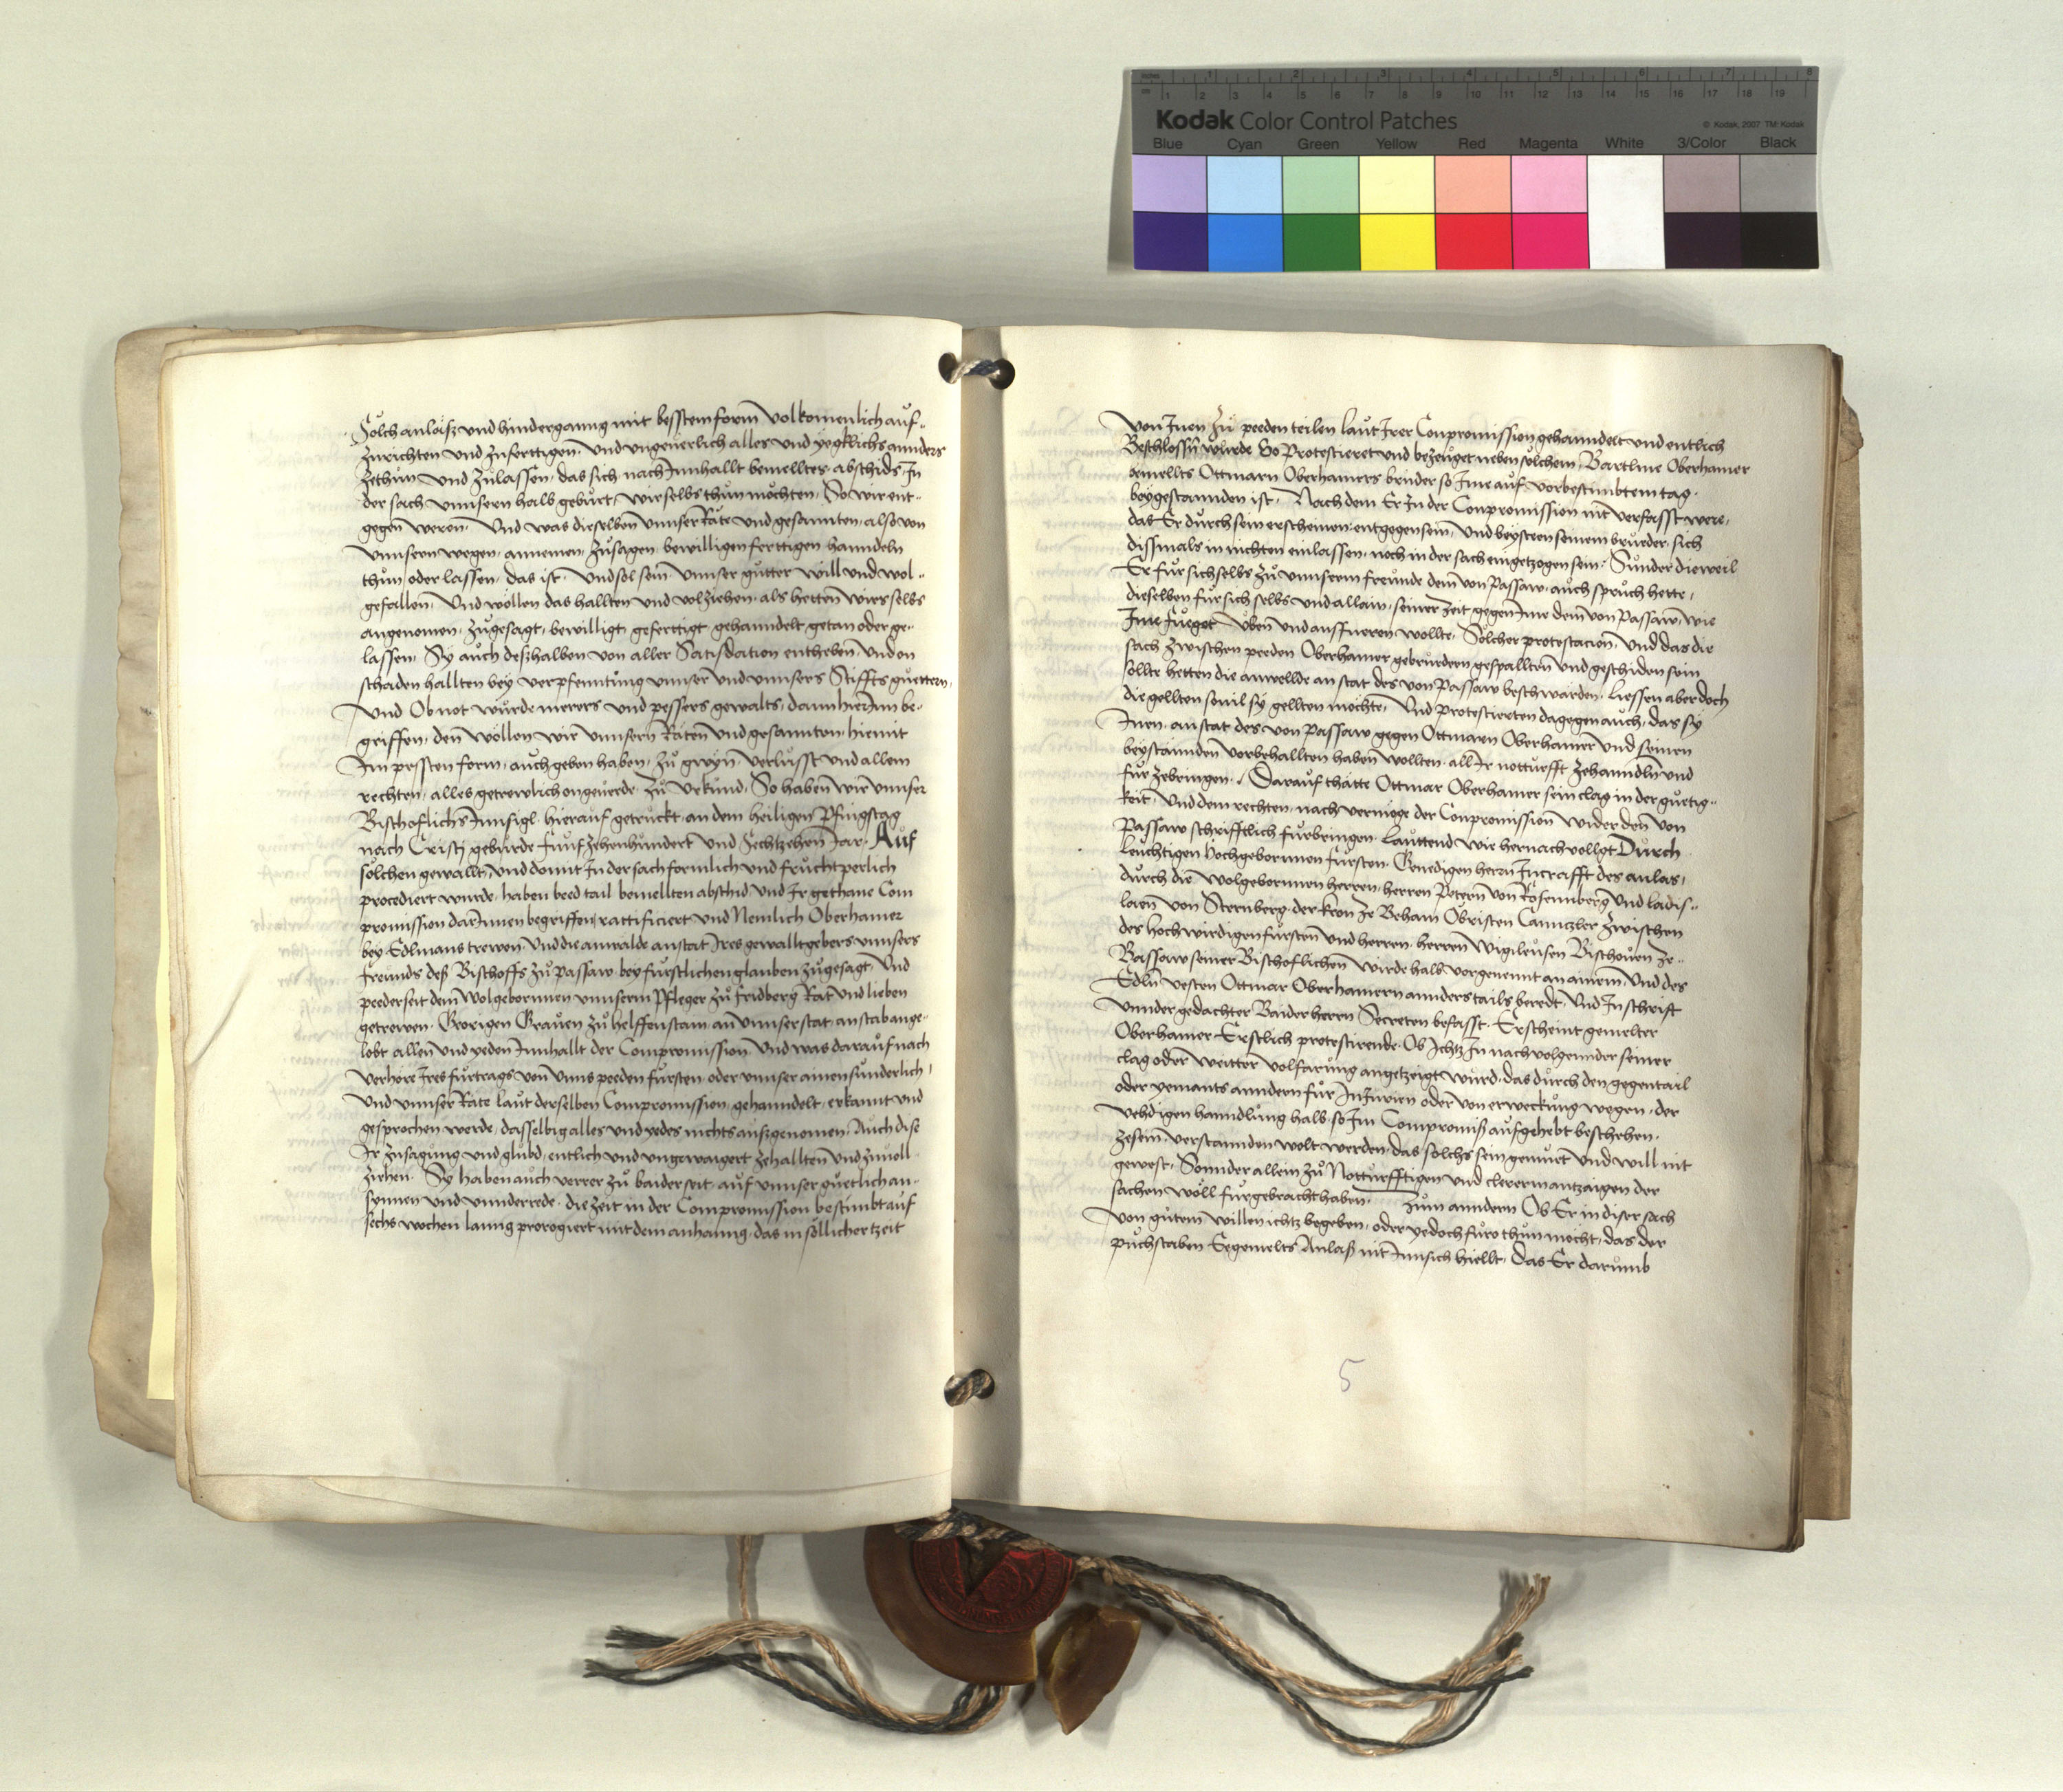 Kodak Color Control Patches
© Kodak, 2007 TM: Kodak
Blue Cyan Green Yellow Red Magenta White 3/Color Black
Solch anlasz und hindergannng mit besstem form volkomenlich auf„
zurichten und zufertigen. und ungeuerlich alles und yegklichs annders
zethun und zulassen, das sich nach Innhallt bemelltes abschids In
der sach unnsern halb geburt, wir selbs thun mochten, So wir ent„
gegen weren. Und was dieselben unnser Räte und gesannten, also von
unnsern wegen, annemen, zusagen, bewilligen ferttigen hanndeln
thun oder lassen, das ist, und sol sein unnser gutter will und wol„
gefallen, Und wöllen das hallten und volziehen, als hetten wirs selbs
angenomen, zugesagt, bewilligt, geferttigt gehanndelt getan oder ge„
lassen, Sy auch deszhalben von aller Satisdation entheben, und on
schaden hallten bey verpfenntung unnser und unnsers Stiffts guettern,
Und Ob not wurde merers und pessers gewalts, dann hierInn be„
griffen, den wöllen wir unnsern Räten und gesannten, hiemit
Im pessten form, auch geben haben, zu gwyn, verlusst und allem
rechten, alles getrewlich ongeuerde. zu Urkund, So haben wir unnser
Bischoflichs Innsigl. hierauf getruckt, an dem heiligen Pfingstag
nach Cristj geburde Funfzehenhundert und Sechtzehen Jar. Auf
solchen gewallt, und domit In der sach formlich und fruchtperlich
procediert wurde, haben beed tail bemellten abschid und Ir gethane Com
promission darInnen begriffen, rattificiert und Nemlich Oberhamer
bey Edlmans trewen, und die anwalde anstat Ires gewalltgebers unnsers
freunds desz Bischoffs zu Passaw, bey furstlichen glauben zugesagt, Und
peederseit dem Wolgebornnen unnserm Pfleger zu Fridberg Rat und lieben
getrewen. Georigen Grauen zu helffenstain, an unnser stat, an stab ange„
lobt allen und yeden Innhallt der Compromission. Und was darauf nach
verhöre Ires furtrags von unns peeden fursten, oder unnser ainen sunderlich,
Und unnser Räte laut derselben Compromission, gehanndelt, erkannt und
gesprochen werde, dasselbig alles und yedes nichts auszgenomen. Auch dise
Ir zusagung und glubd, entlich und ungewaigert zehallten und zuuoll
ziehen. Sy haben auch verrer zu baiderseit, auf unnser guetlich an„
synnen und unnderrede, die zeit in der Compromission bestimbt auf
sechs wochen lanng prorogiert mit dem anhanng, das in sollicher tzeit
Von Inen zu peeden teilen laut Irer Conpromission gehanndelt und entlich
Beschlossn wurde So Protestieret und bezeuget neben solchem, Bartlme Oberhamer
bemellts Ottmarn Oberhamers bruder so Ime auf vorbestimbtem tag.
beygestannden ist, Nach dem Er In der Conpromission nit verfasst were,
das Er durch sein erscheinen, entgegensein, Und beysteen seinem bruder, sich
dissmals in nichten einlassen, noch in der sach eingetzogen sein. Sunder dieweil
Er fur sich selbs zu unnserm freunde dem von Passaw, auch spruch hette,
dieselben fur sich selbs und allain, seiner zeit gegen Ime dem von Passaw, wie
Ime fueget Uben und ausfueren wollte, Solcher protestation, Und das die
sach zwischen peeden Oberhamer gebruedern gespallten und geschiden sein
sollte hetten die anwellde an stat des von Passaw beschwarden, liessen aber doch
die gellten souil sy gellten mochte, Und protestireten dagegen auch, das sy
Inen, anstat des von Passaw gegen Ottmarn Oberhamer und seinen
beystannden vorbehallten haben wollten, all Ir notturfft zehanndln und
fur zebringen. / Darauf thatte Ottmar Oberhamer sein clag in der guetig„
keit, Und dem rechten, nach vermöge der Conpromission wider den von
Passaw schrifftlich furbringen. Lauttend wie hernach vollgt Durch
leuchtigen Hochgebornnen fursten. Genedigen herrn Increafft des anlas,
durch die Wolgebornnen herren, herren Petern von Rosennberg und Ladis„
laen von Sternberg. der kron ze Beham Obristen Canntzler zwischen
des hochwirdigen fursten und herren, herren Wigileusen Bischouen ze„
Bassaw seiner Bischoflichen wirde halb vorgenennt an ainem, Und des
Edln vesten Ottmar Oberhamern annders tails beredt, Und In schrift
unnder gedachter Baider herrn Secreten befasst. Erscheint gemelter
Oberhamer Erstlich protestirende. Ob Ichtz In nachvolgennder seiner
clag oder weitter volfarung angetzeigt wurd, das durch den gegentail
oder yemants anndern fur Inzurien oder von erweckung wegen, der
vehdigen hanndlung halb, so Im Compromisz aufgehebt beschehen,
zesein, verstannden wolt werden, das solchs sein gemuet und will nit
gewest, Sonnder allein zu Notturfftigen und clererm antzaigen der
sachen woll furgebracht haben. Zum anndern Ob Er in diser sach
von gutem willen ichtz begeben, oder yedoch furo thun mocht, das der
puchstaben Egemelts Anlasz nit Innsich hiellt, Das Er darumb
5